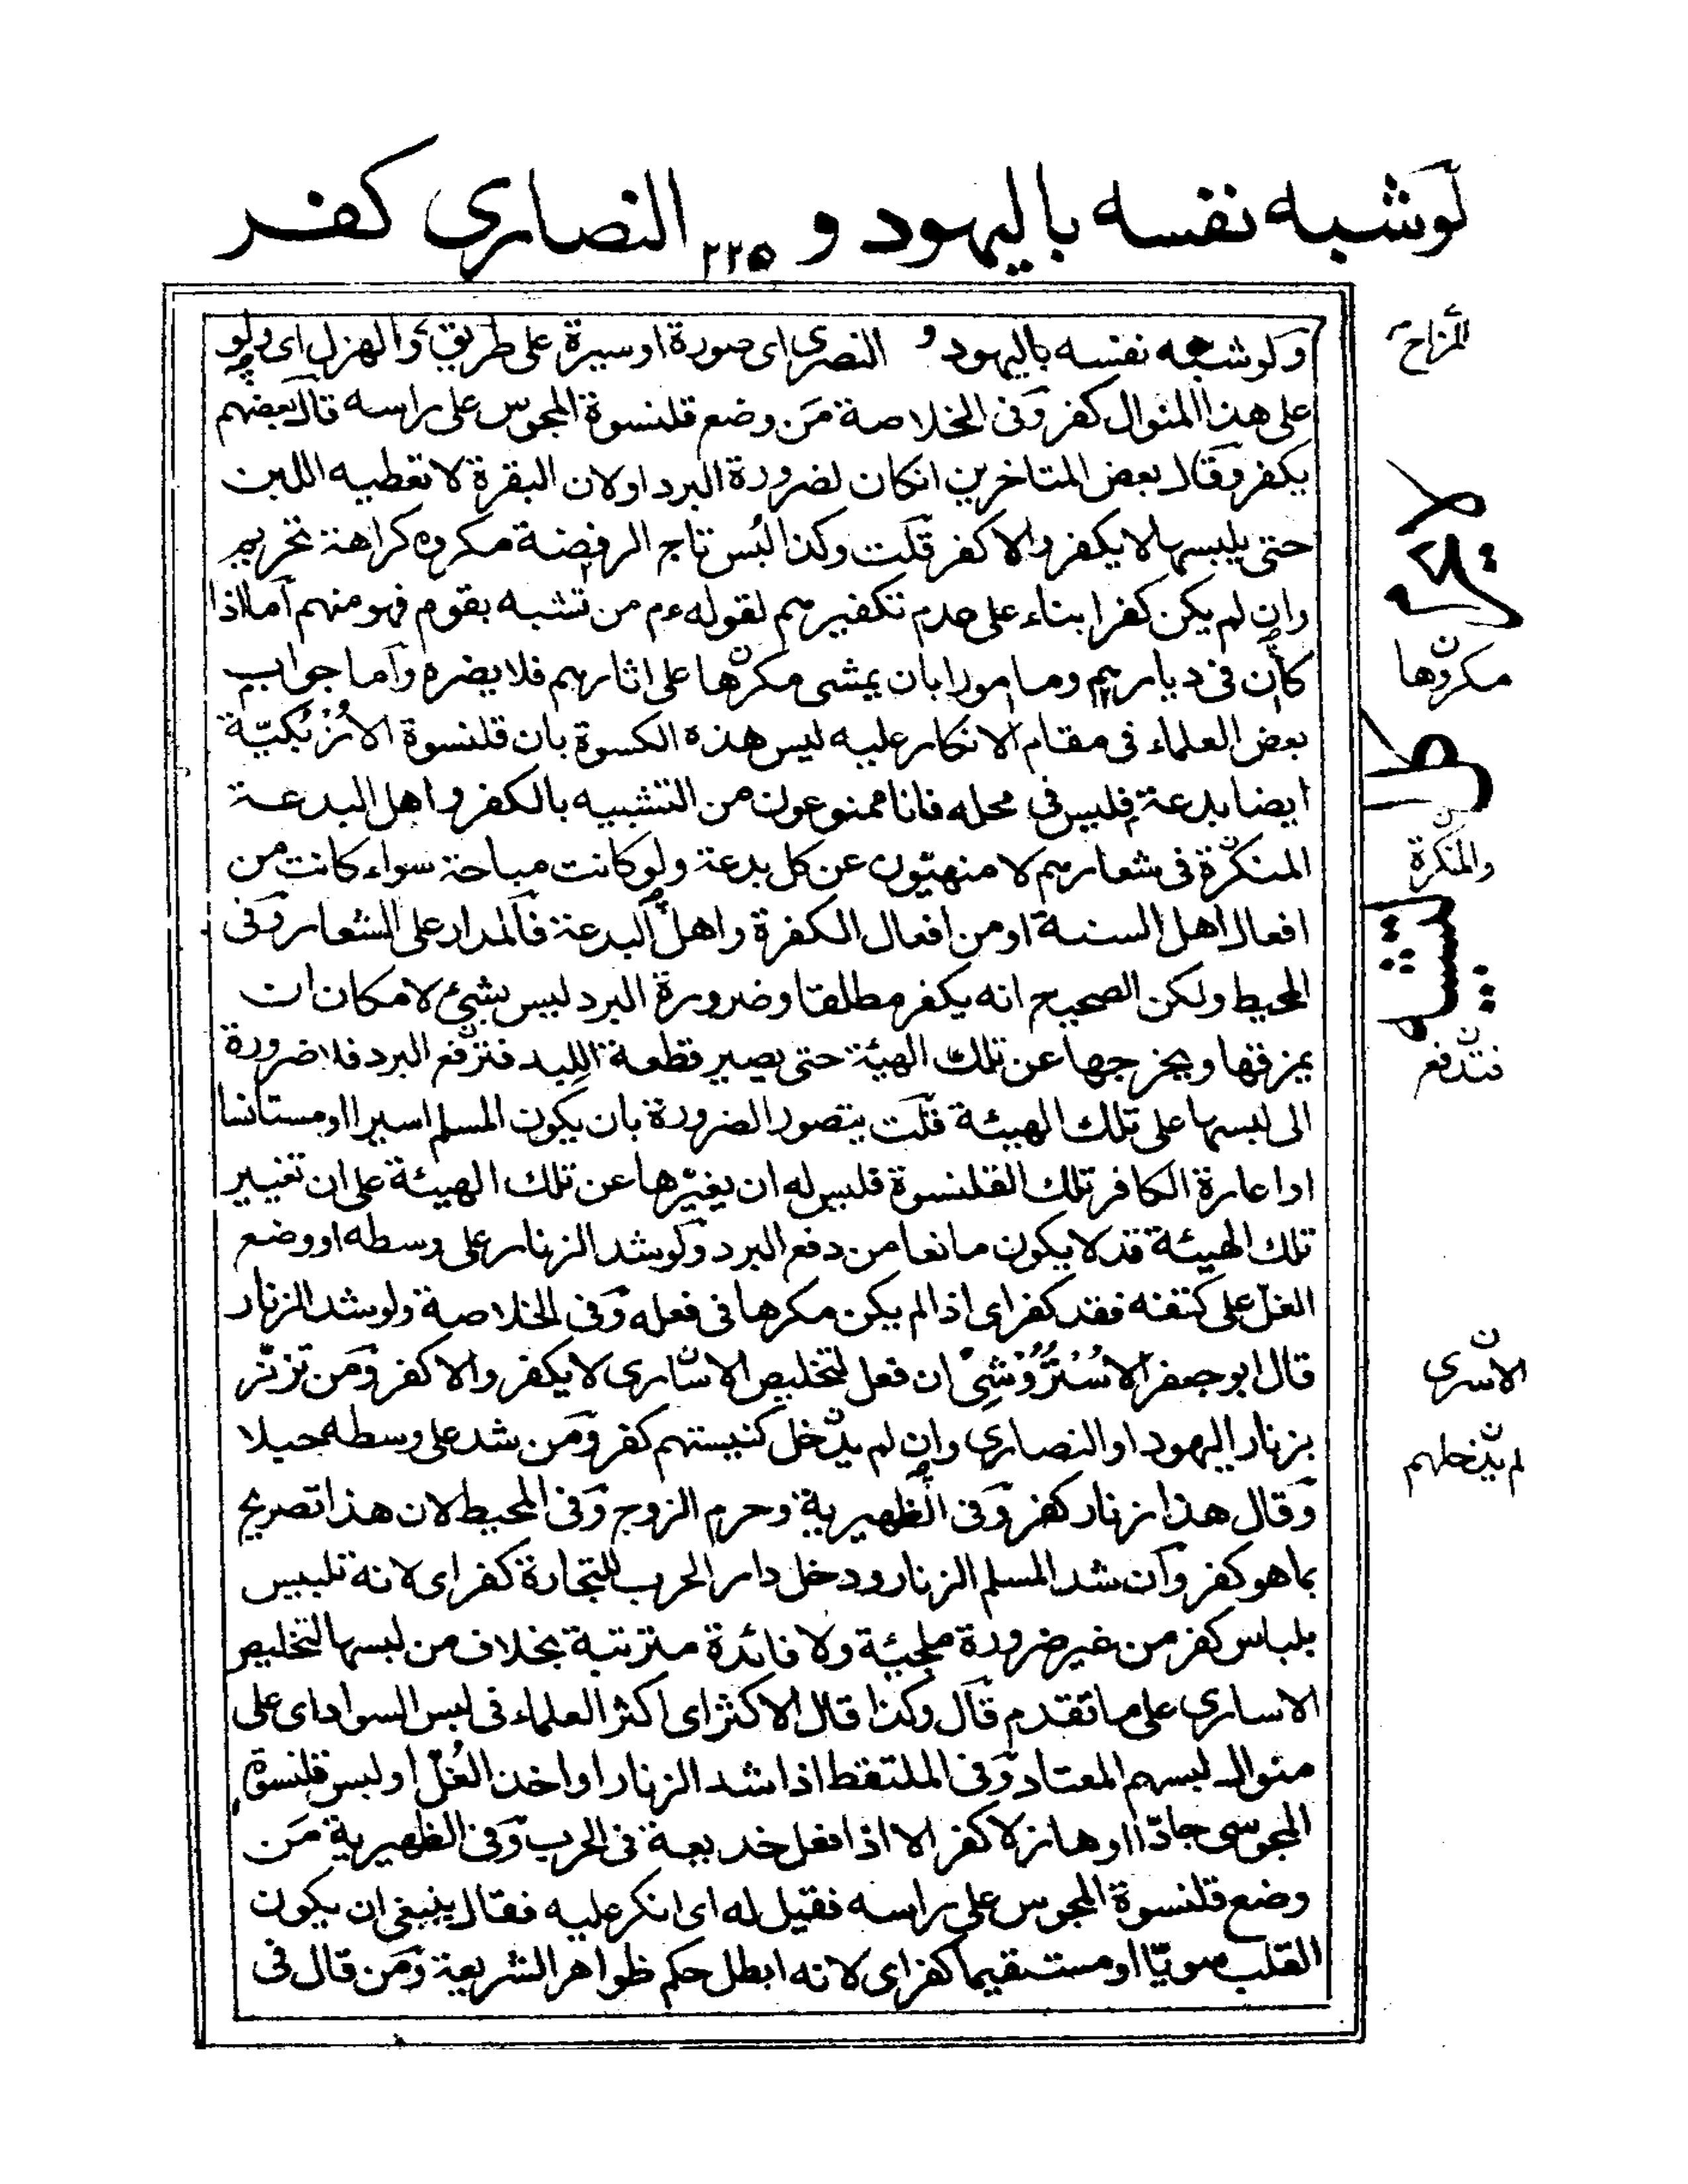 لوشبه نفسه باليهود و ٢٢٥ النصارى كفر
ولوشبه نفسه باليهود و النصرى اى صورة اوسيرة على طريق والهزل اى ولو
المزاح
على هذا المنوال كفر وفى الخلاصة من وضع قلنسوة المجوس على راسه قال بعضهم
يكفر وقال بعض المتاخرين انكان لضرورة البرد اولان البقرة لاتعطيه اللبن
حتى يلبسها لايكفر والاكفر قلت وكذا لبس تاج الرفضة مكروه كراهة تحريم
وان لم يكن كفرا بناء على عدم تكفيرهم لقوله عم من تشبه بقوم فهو منهم اما اذا
كان فى ديارهم ومامورا بان يمشى مكرها على اثارهم فلايضره واما جواب
مكروها
بعض العلماء فى مقام الانكار عليه ليس هذه الكسوة بان قلنسوة الازبكية
ايضا بدعة فليس فى محله فانا ممنوعون من التشبيه بالكفر واهل البدعة
المنكرة فى شعارهم لا منهيون عن كل بدعة ولوكانت مباحة سواء كانت من
والمنكرة
افعال اهل السنة اومن افعال الكفرة واهل البدعة فالمدار على الشعار وفى
المحيط ولكن الصحيح انه يكفر مطلقا وضرورة البرد ليس بشئ لامكان ان
يمزقها ويخرجها عن تلك الهيئة حتى يصير قطعة اللبد فتدفع البرد فلاضرورة
فتدفع
الى لبسها على تلك الهيئة قلت يتصور الضرورة بان يكون المسلم اسيرا اومستانسا
اواعارة الكافر تلك القلنسوة فليس له ان يغيرها عن تلك الهيئة على ان تغيير
تلك الهيئة قد لايكون مانعا من دفع البرد ولوشد الزنار على وسطه اووضع
الغل على كتفه فقد كفر اى اذا لم يكن مكرها فى فعله وفى الخلاصة ولوشد الزنار
قال ابوجعفر الاستروشنى ان فعل لتخليص الاسارى لايكفر والاكفر ومن تزنر
الاسرى
بزنار اليهود او النصارى وان لم يدخل كنيستهم كفر ومن شد على وسطه حبلا
لم يدخلهم
وقال هذا زنار كفر وفى الظهيرية وحرم الزوج وفى المحيط لان هذا تصريح
بماهو كفر وان شد المسلم الزنار ودخل دار الحرب للتجارة كفر اى لانه تلبيس
بلباس كفر من غير ضرورة ملجئة ولا فائدة مترتبة بخلاف من لبسها لتخليص
الاسارى على ماتقدم قال وكذا قال الاكثر اى اكثر العلماء فى لبس السواد اى على
منوال لبسهم المعتاد وفى الملتقط اذا شد الزنار اواخذ الغل اولبس قلنسوة
المجوسى جادا اوهازلا كفر الا اذا فعل خديعة فى الحرب وفى الظهيرية من
وضع قلنسوة المجوس على راسه فقيل له اى انكر عليه فقال ينبغى ان يكون
القلب سويا اومستقيما كفر اى لانه ابطل حكم ظواهر الشريعة ومن قال فى